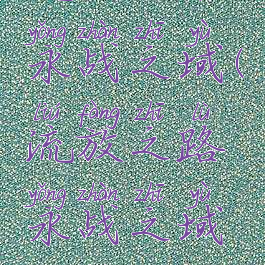 yǒng zhàn zhī yù
永战之域(
liú fàng zhī lù
流放之路
yǒng zhàn zhī yù
永战之域